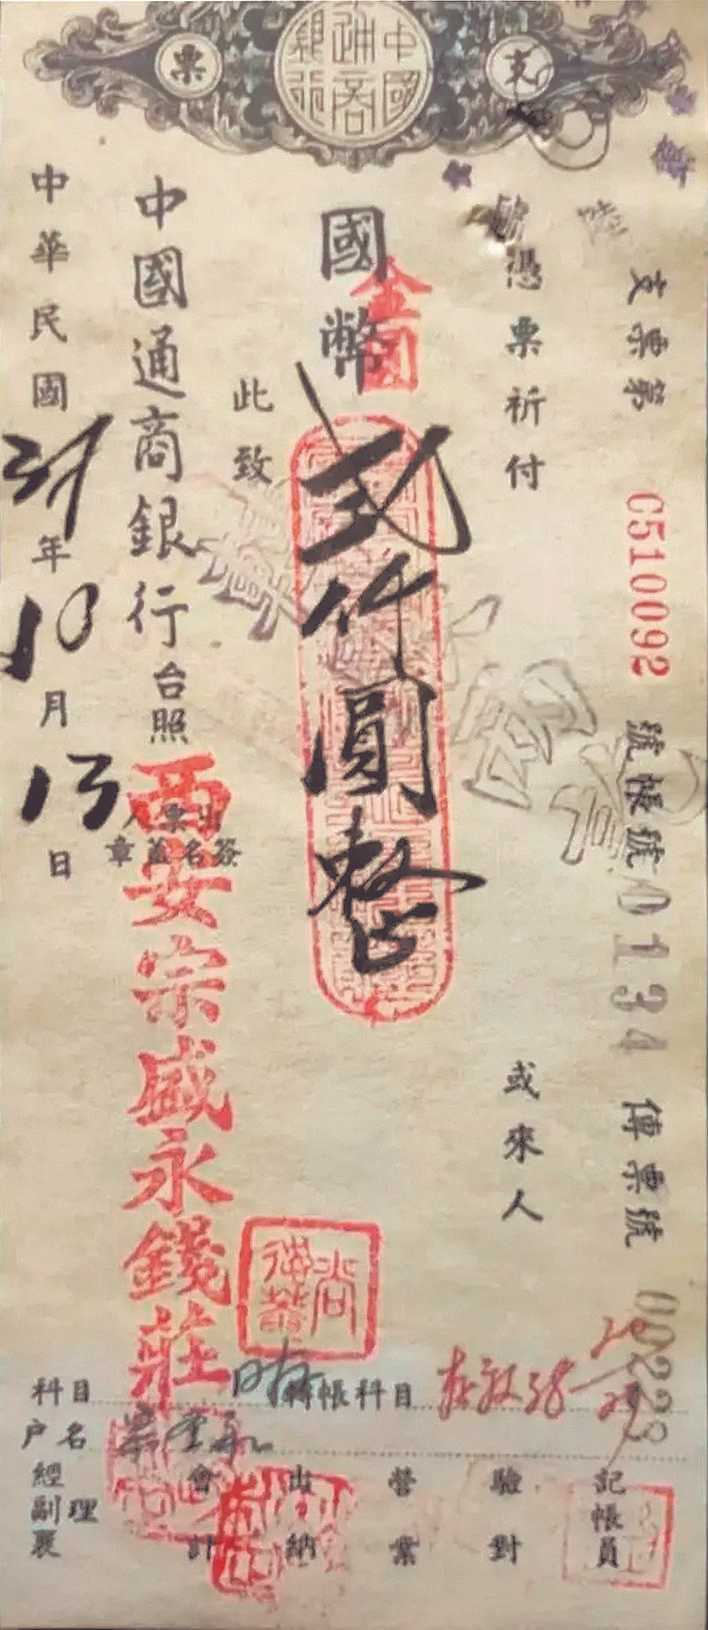 支票
中國通商銀行
支票第 C510092 號帳號 0134 傳票號 00228
憑票祈付
或來人
國幣
金圓
弍仟圓整
此致
中國通商銀行台照
出票人
簽名蓋章
西安宗盛永錢莊
中華民國 37 年 10 月 13 日
科目
轉帳科目
户名
經副襄理
會計
出納
營業
驗對
記帳員